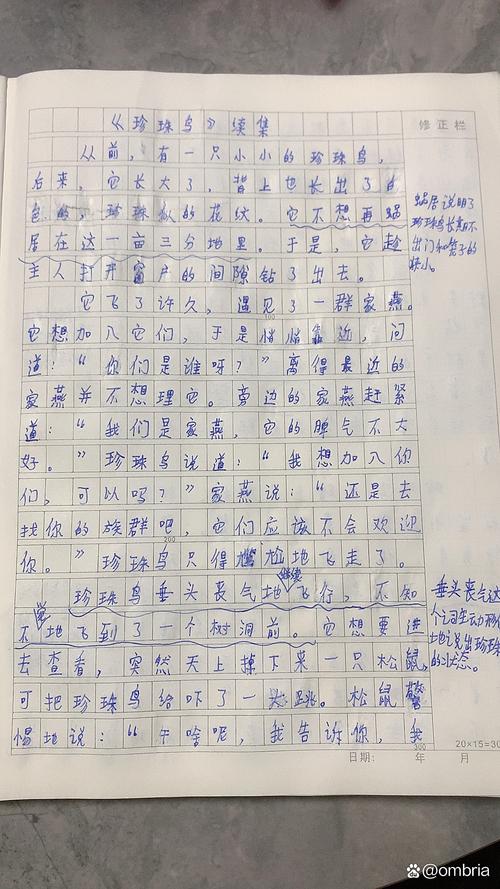 《珍珠鸟》续集
修正栏
从前，有一只小小的珍珠鸟，
后来，它长大了，背上也长出了白
色的，珍珠似的花纹。它不想再蜗
居在这一亩三分地里。于是，它趁
主人打开窗户的间隙钻了出去。
蜗居说明了
珍珠鸟长期不
出门和笼子的
狭小。
它飞了许久，遇见了一群家燕。
它想加入它们，于是悄悄靠近，问
道：“你们是谁呀？”离得最近的
家燕并不想理它。旁边的家燕赶紧
道：“我们是家燕，它的脾气不大
好。”珍珠鸟说道：“我想加入你
们，可以吗？”家燕说：“还是去
找你的族群吧，它们应该不会欢迎
你。”珍珠鸟只得尴尬地飞走了。
继续
珍珠鸟垂头丧气地飞行，不知
觉
不地飞到了一个树洞前。它想要进
去查看，突然天上掉下来一只松鼠，
可把珍珠鸟给吓了一大跳。松鼠警
惕地说：“干啥呢，我告诉你，我
垂头丧气这
个词生动形象
地说出珍珠
的状态。
100
200
300
20×15=300
日期： 年 月
@ombria